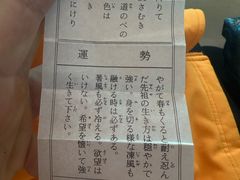 りて
さむき
道のべの
色は
にけり
運勢
やがて春もくると耐え忍ん
だ先祖の生き方は穏やかで
強い。身を切る様な凍風も
融ける時は必ずある。
暑風も必ず冷える 欲望は
いけない。希望を懐いて強
く生きて下さい。